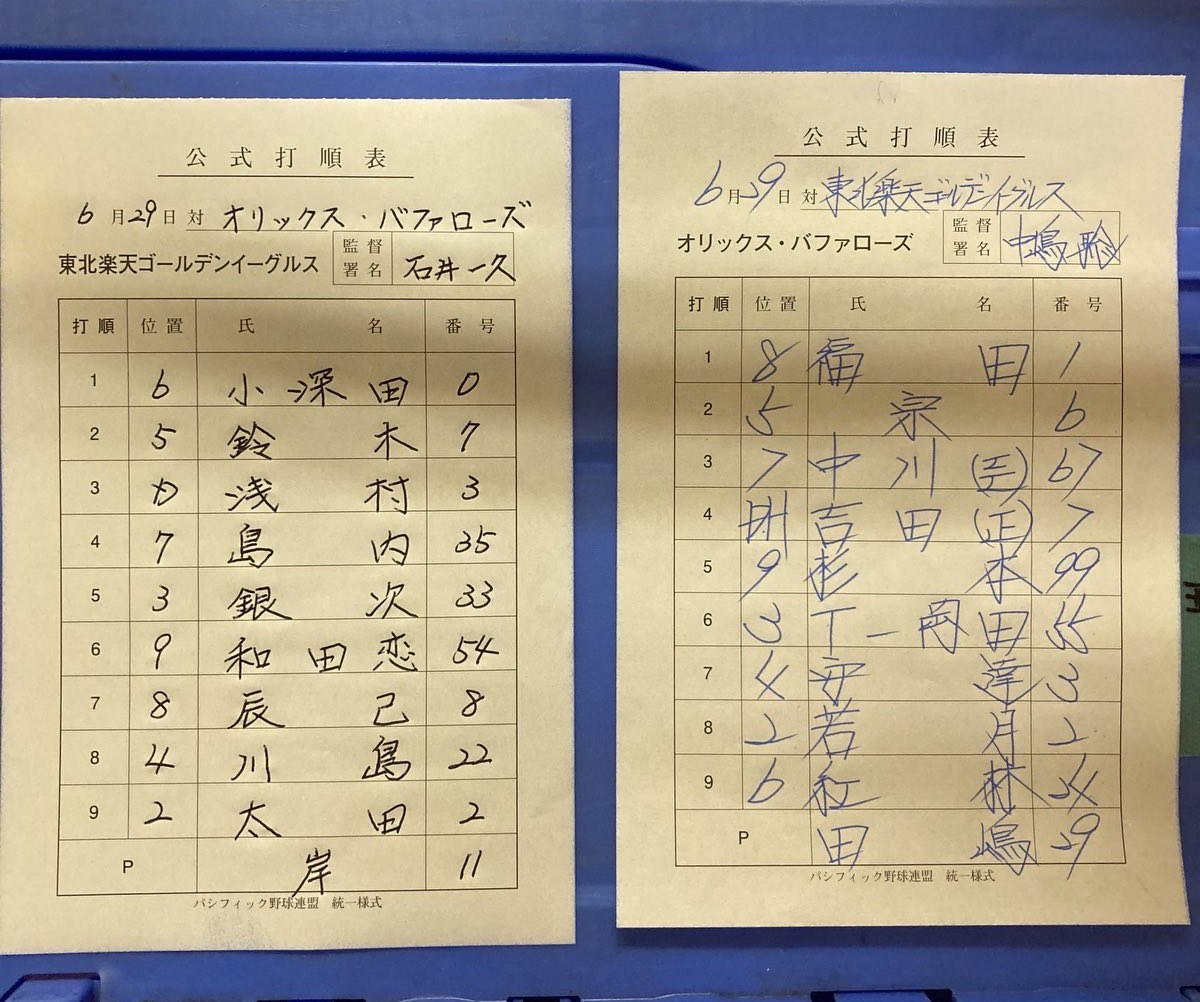 公式打順表
6月29日 対 オリックス・バファローズ
東北楽天ゴールデンイーグルス 監督署名 石井一久
打順 位置 氏名 番号
1 6 小深田 0
2 5 鈴木 7
3 D 浅村 3
4 7 島内 35
5 3 銀次 33
6 9 和田恋 54
7 8 辰己 8
8 4 川島 22
9 2 太田 2
P 岸 11
パシフィック野球連盟 統一様式
公式打順表
6月29日 対 東北楽天ゴールデンイーグルス
オリックス・バファローズ 監督署名 中嶋聡
打順 位置 氏名 番号
1 8 福田 1
2 5 宗 6
3 7 中川(圭) 67
4 DH 吉田(正) 7
5 9 杉本 99
6 3 T-岡田 55
7 4 安達 3
8 2 若月 2
9 6 紅林 24
P 田嶋 29
パシフィック野球連盟 統一様式